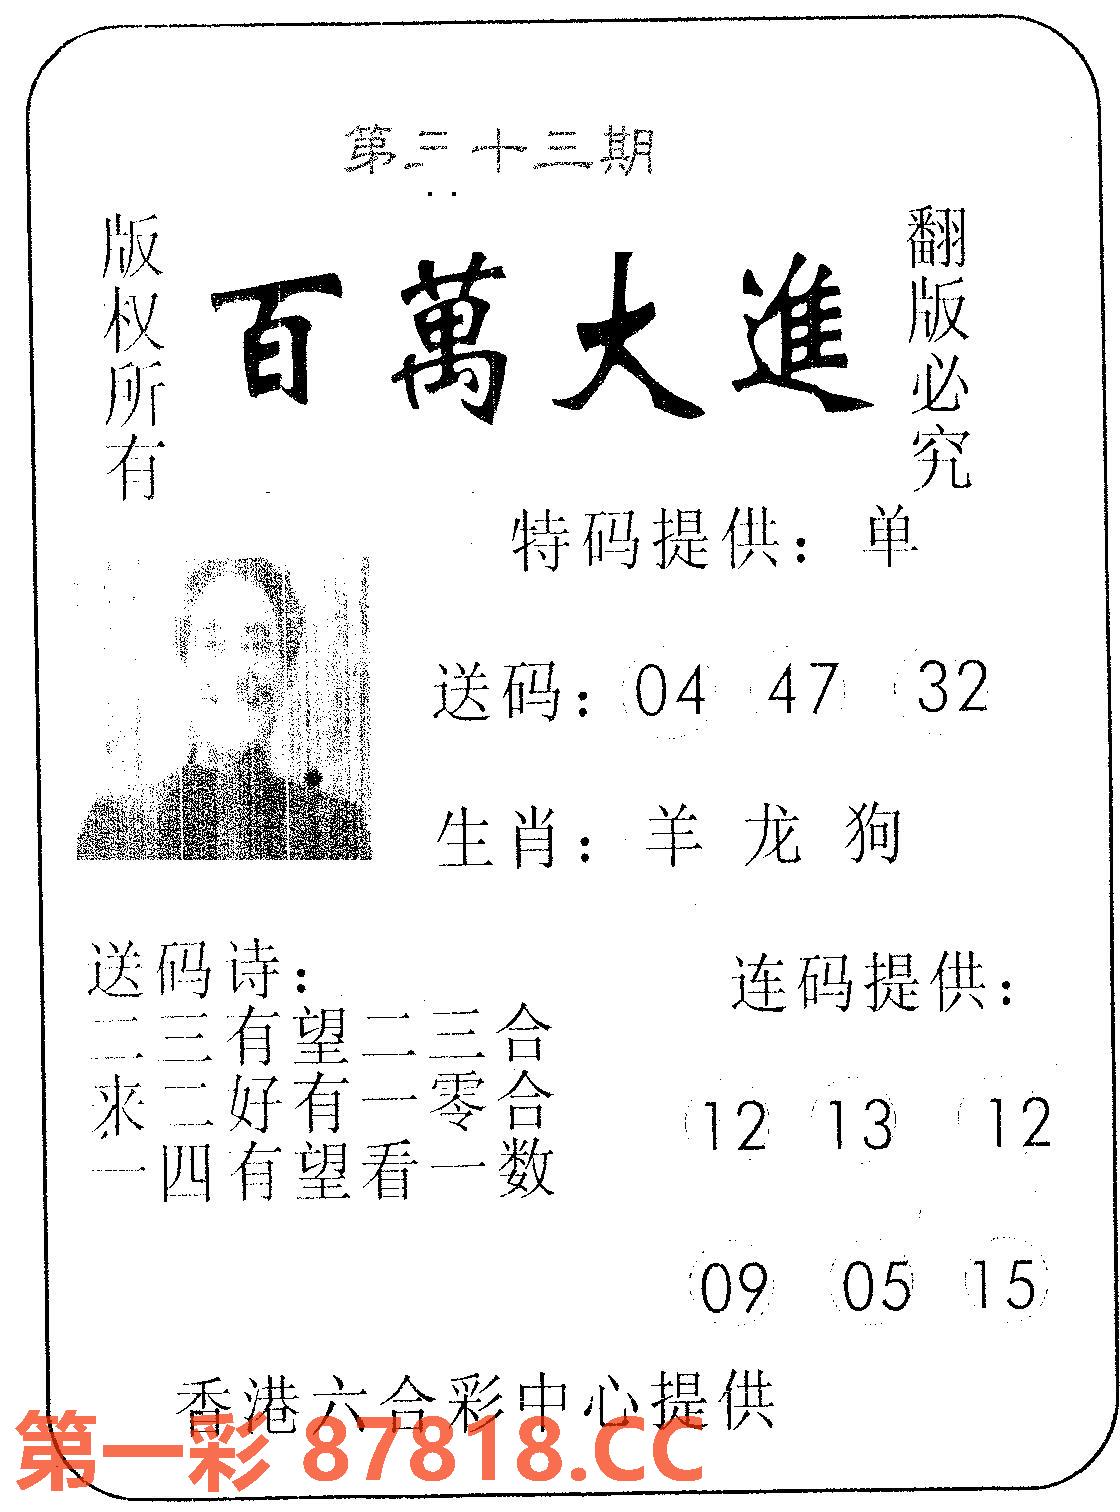 第三十三期
版权所有
百萬大進
翻版必究
特码提供：单
送码：04 47 32
生肖：羊 龙 狗
送码诗：
二三有望二三合
来二好有一零合
一四有望看一数
连码提供：
12 13 12
09 05 15
香港六合彩中心提供
第一彩 87818.CC